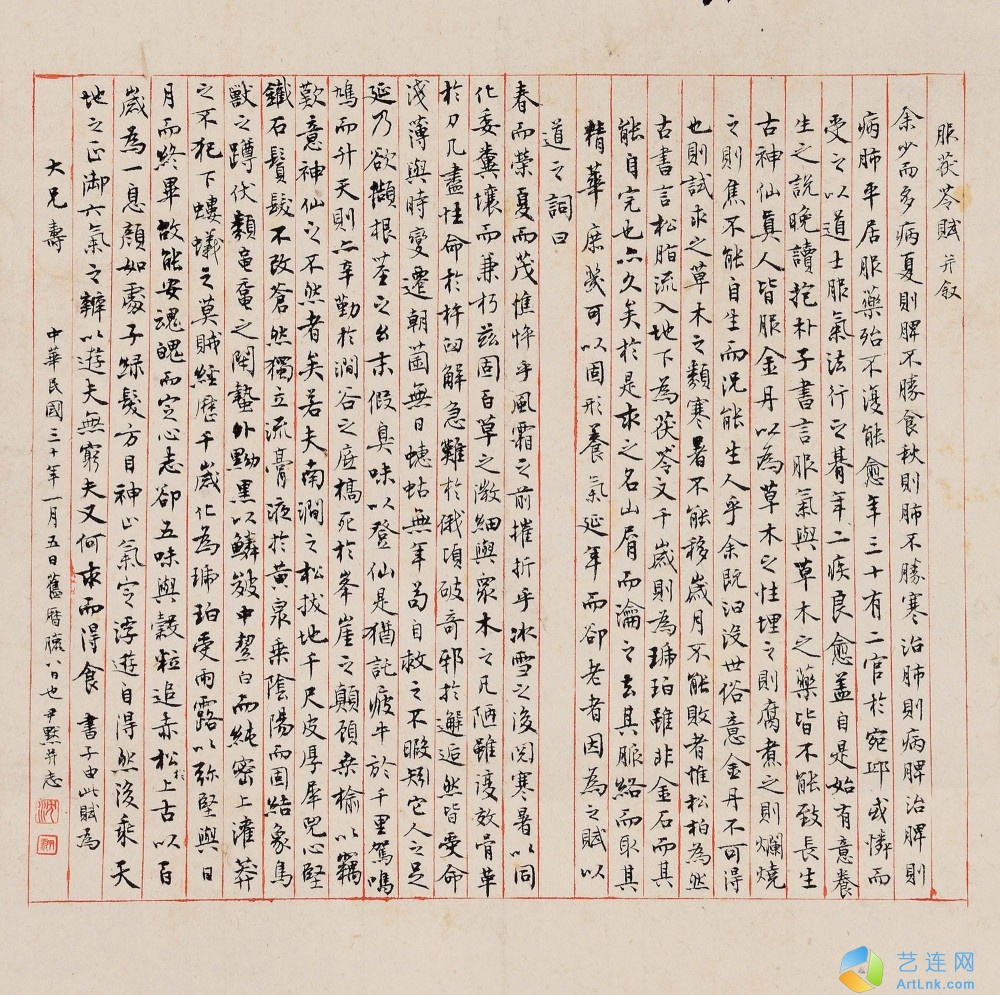 服茯苓賦并敘
余少而多病夏則脾不勝食秋則肺不勝寒治肺則病脾治脾則
病肺平居服藥殆不復能愈年三十有二官於宛邱或憐而
受之以道士服氣法行之朞年二疾良愈盖自是始有意養
生之說晚讀抱朴子書言服氣與草木之藥皆不能致長生
古神仙真人皆服金丹以為草木之性埋之則腐煮之則爛燒
之則焦不能自生而況能生人乎余既汩沒世俗意金丹不可得
也則試求之草木之類寒暑不能移歲月不能敗者惟松柏為然
古書言松脂流入地下為茯苓又千歲則為琥珀雖非金石而其
能自完也亦久矣於是求之名山屑而瀹之去其脈絡而取其
精華庶幾可以固形養氣延年而卻老者因為之賦以
道之詞曰
春而榮夏而茂憔悴乎風霜之前摧折乎冰雪之後閱寒暑以同
化委糞壤而兼朽茲固百草之微細與眾木之凡陋雖復效骨革
於刀几盡性命於杵臼解急難於俄頃破奇邪於邂逅然皆受命
淺薄與時變遷朝菌無日蟪蛄無年苟自救之不暇矧它人之足
延乃欲擷根莖之幺末假臭味以登仙是猶託疲牛於千里駕鳴
鳩而升天則亦辛勤於澗谷之底槁死於峯崖之顛顧桑榆以竊
歎意神仙之不然者矣若夫南澗之松拔地千尺皮厚犀兕心堅
鐵石鬚髮不改蒼然獨立流膏液於黃泉乘陰陽而固結象鳥
獸之蹲伏類龜黿之閉蟄外黝黑以鱗皴中潔白而純密上灌莽
之不犯下螻蟻之莫賊經歷千歲化為琥珀受雨露以弥堅與日
月而終畢故能安魂魄而定心志卻五味與穀粒追赤松於上古以百
歲為一息顏如處子綠髮方目神止氣定浮遊自得然後乘天
地之正御六氣之辯以遊夫無窮夫又何求而得食　書子由此賦為
大兄壽　中華民國三十年一月五日舊曆臘八日也尹默并志
沈
艺连网
ArtLnk.com